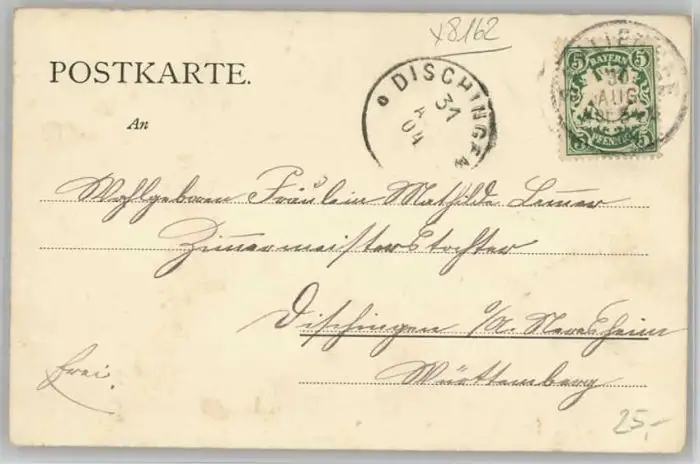 x8162
POSTKARTE.
An
DISCHINGEN
31
A
04
BAYERN
5 5
30
AUG
5 PFENNIG 5
Wohlgeboren Fräulein Mathilde
Zimmermeisterstochter
Dischingen O/A. Neresheim
Württemberg
frei.
25,-